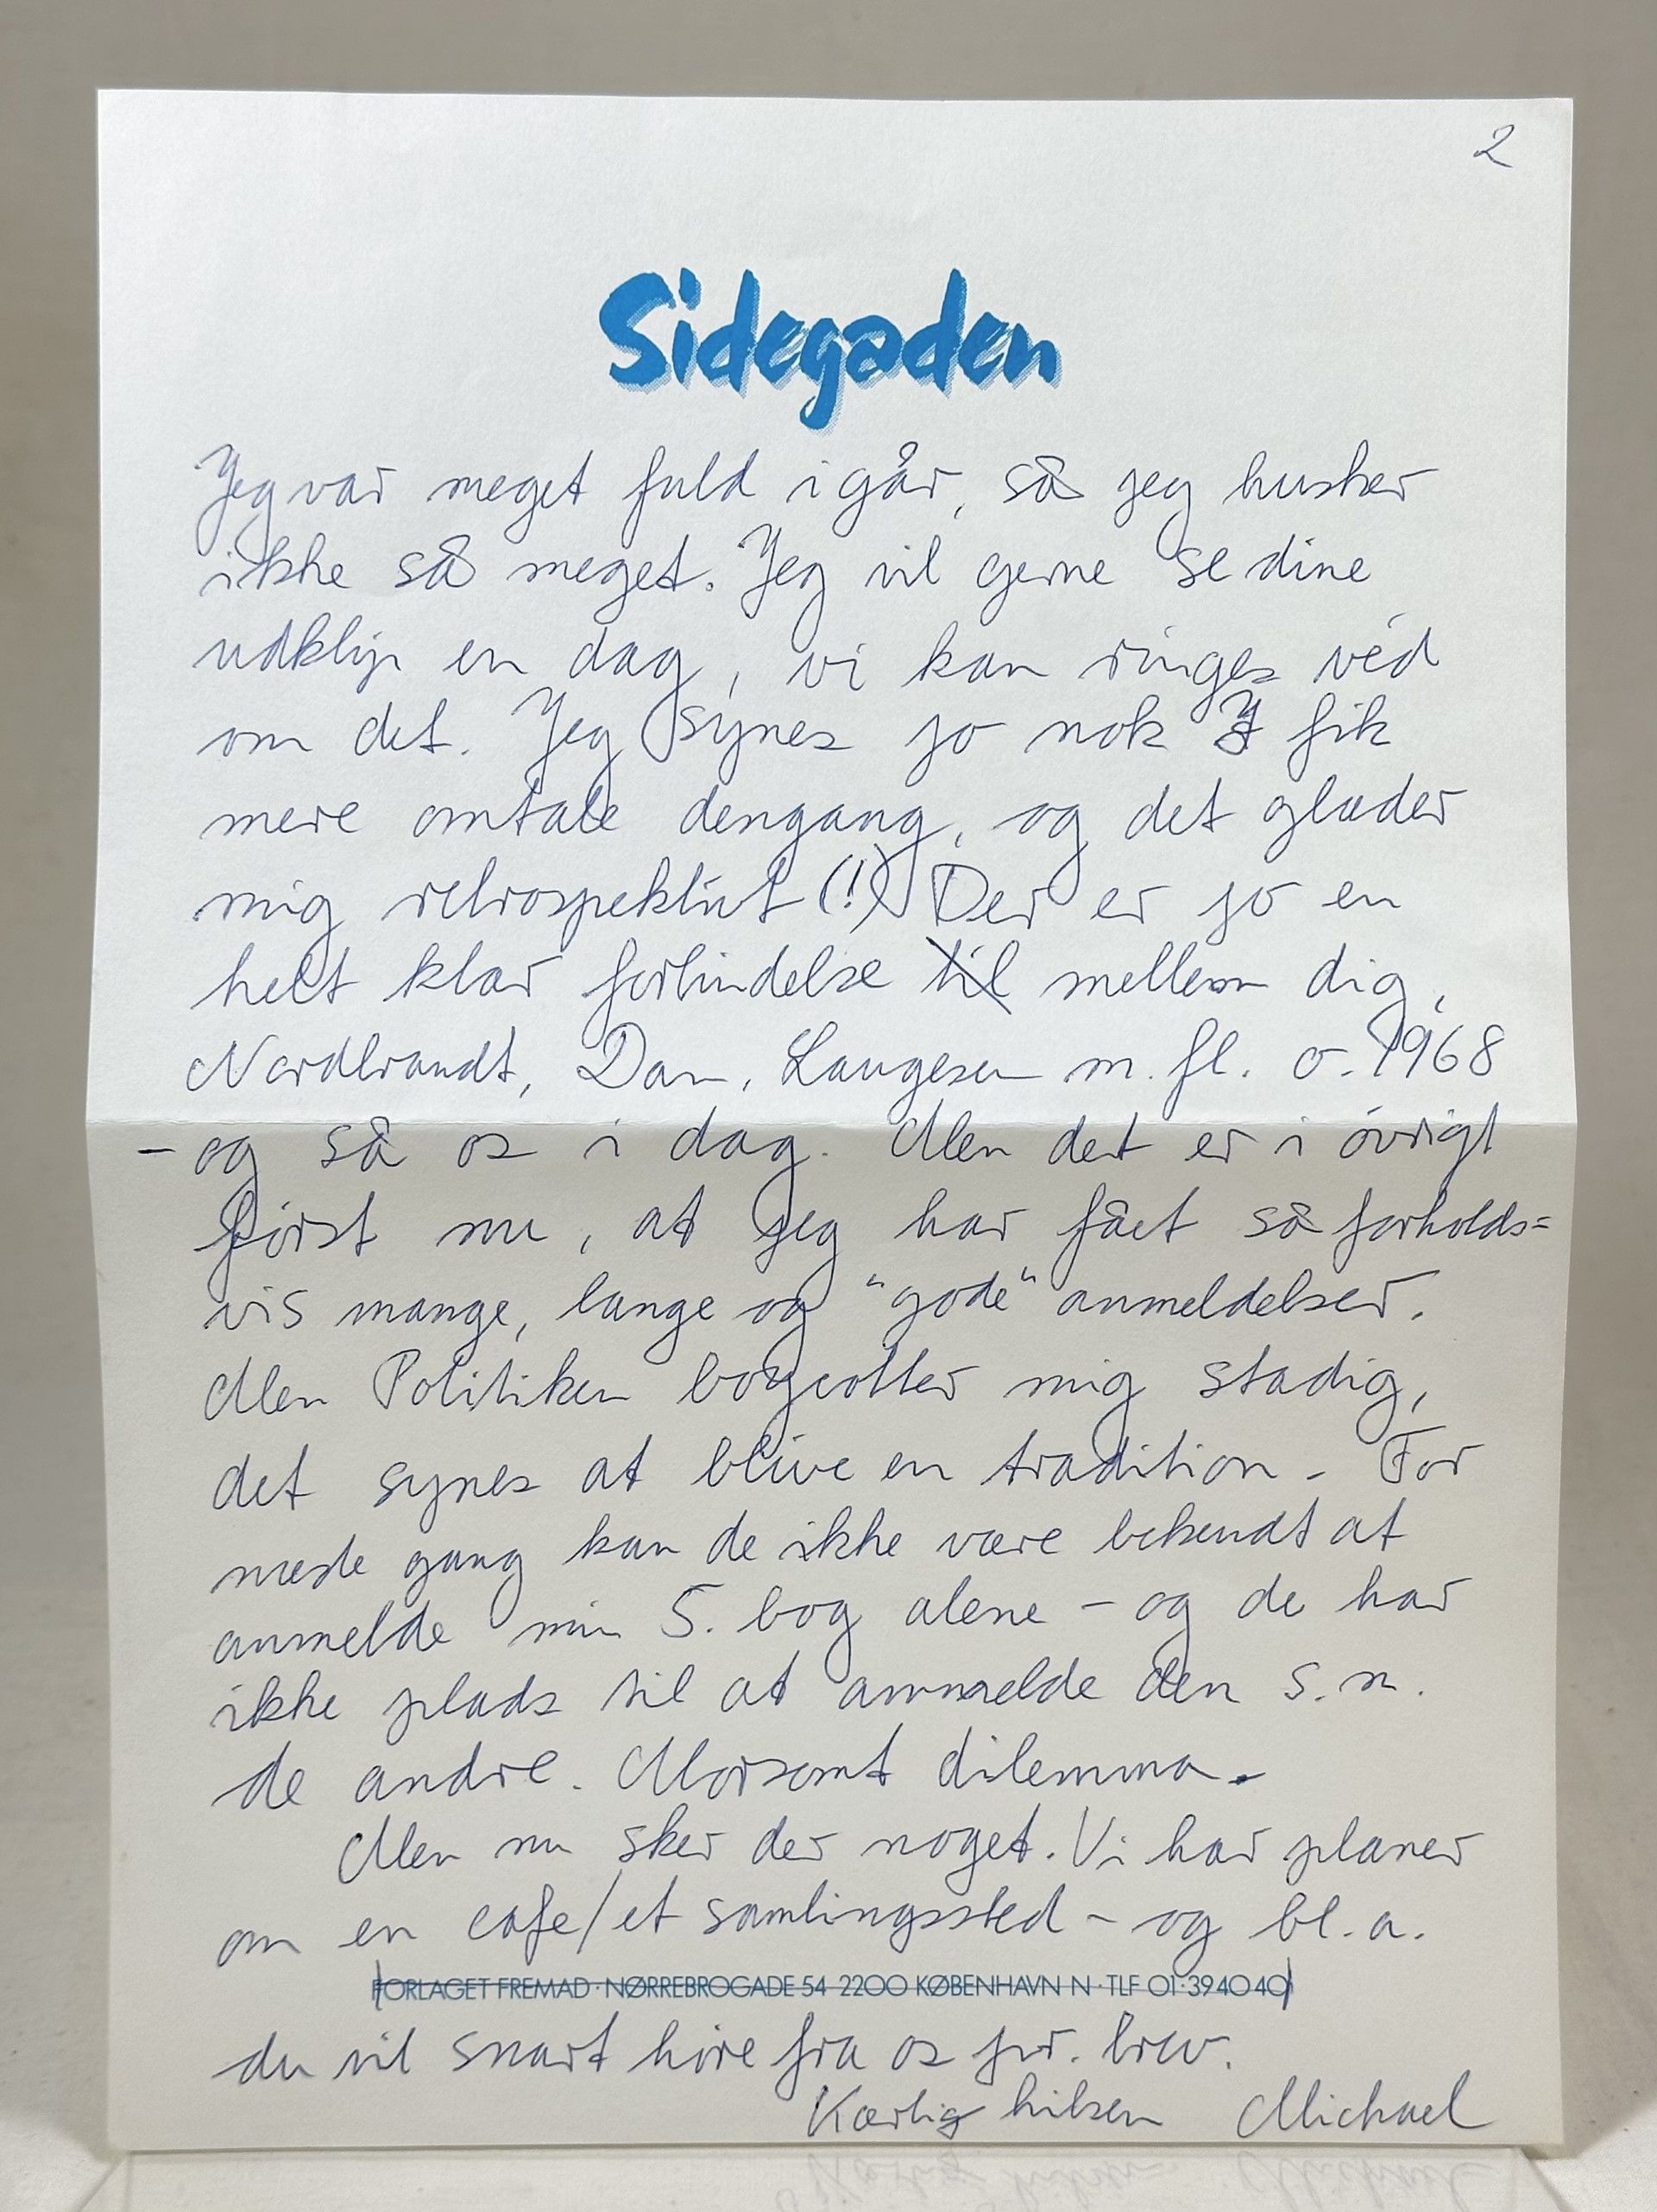 2
Sidegaden
Jeg var meget fuld i går, så jeg husker
ikke så meget. Jeg vil gerne se dine
udklip en dag, vi kan ringes véd
om det. Jeg synes jo nok I fik
mere omtale dengang, og det glæder
mig retrospektivt (!) Der er jo en
helt klar forbindelse til mellem dig,
Nordbrandt, Dan, Laugesen m. fl. o. 1968
- og så os i dag. Men det er i óvrigt
fórst nu, at jeg har fået så forholds=
vis mange, lange og "gode" anmeldelser.
Men Politiken boycotter mig stadig,
det synes at blive en tradition - For
næste gang kan de ikke være bekendt at
anmelde min 5. bog alene - og de har
ikke plads til at anmelde den s. m.
de andre. Morsomt dilemma.
Men nu sker der noget. Vi har planer
om en cafe/et samlingssted - og bl. a.
FORLAGET FREMAD · NØRREBROGADE 54 2200 KØBENHAVN N · TLF 01·39 40 40
du vil snart hóre fra os pr. brev.
Kærlig hilsen Michael